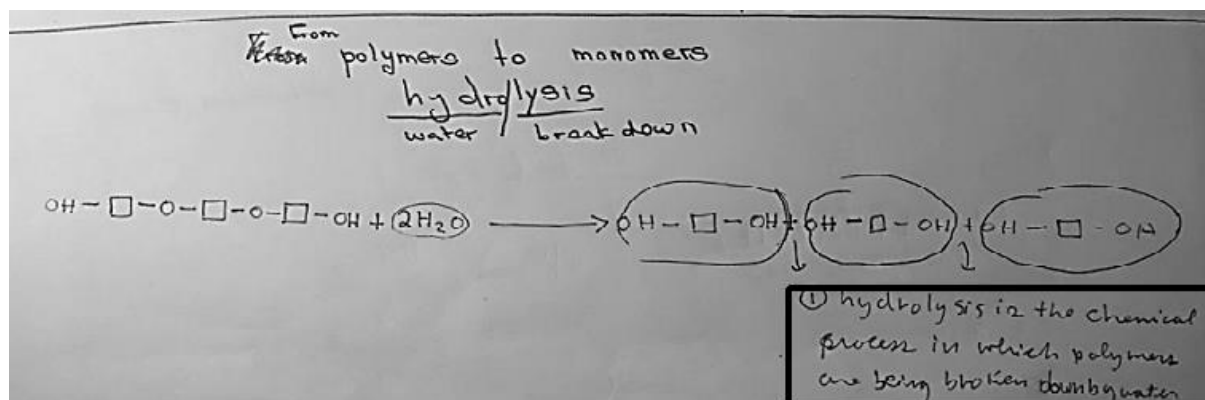 From
polymers to monomers
hydrolysis
water / break down
OH - □ - O - □ - O - □ - OH + 2H₂O ⟶ OH - □ - OH + OH - □ - OH + OH - □ - OH
① hydrolysis is the chemical
process in which polymers
are being broken down by water